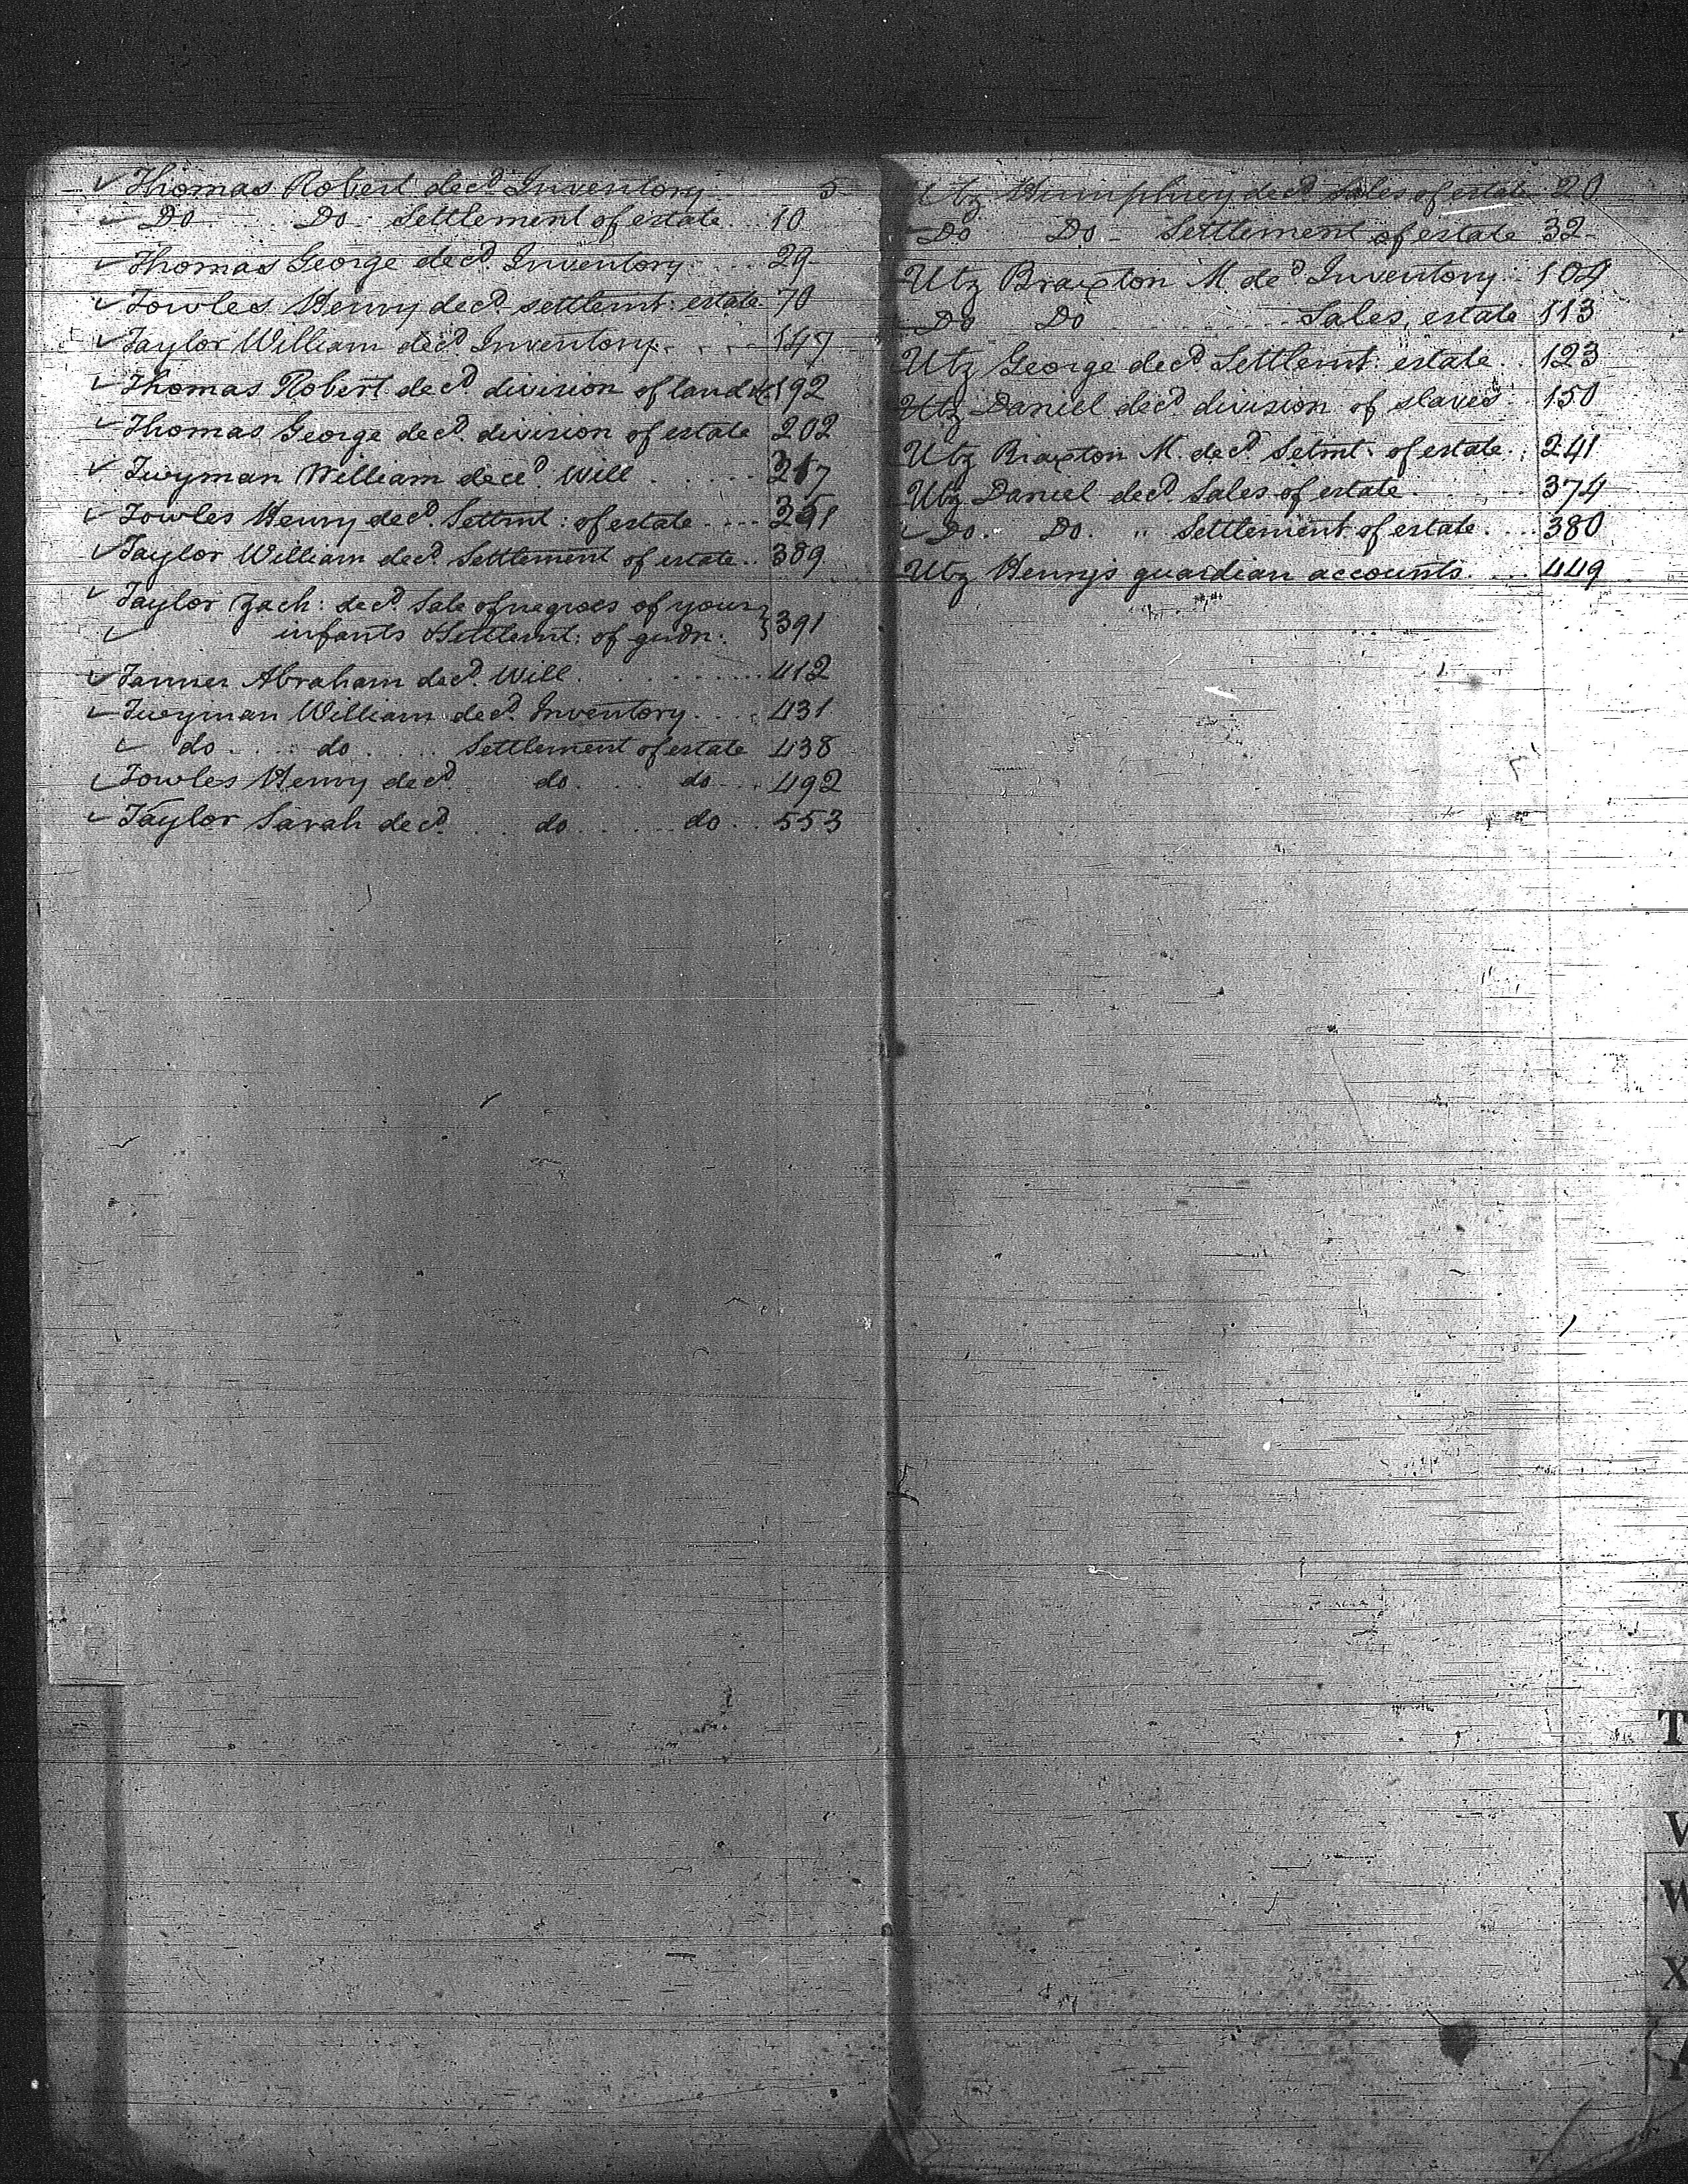 ✓ Thomas Robert decd Inventory 5
✓ Do Do Settlement of estate .. 10
✓ Thomas George decd Inventory .... 29
✓ Towles Henry decd settlemt: estate 70
✓ Taylor William decd Inventory . . . 147
✓ Thomas Robert decd division of land &c 192
✓ Thomas George decd division of estate 202
✓ Twyman William decd Will ......
✓ Towles Henry decd Settmt: of estate ....
✓ Taylor William decd Settlement of estate .. 389
✓ Taylor Zach: decd Sale of negroes of
✓ infants & Settlemt: of gudn: } 391
✓ Tanner Abraham decd Will .......... 412
✓ Twyman William decd Inventory .... 431
✓ do .. do .... Settlement of estate 438
✓ Towles Henry decd .. do .... do ... 492
✓ Taylor Sarah decd .. do .... do .. 553
Utz Humphrey decd Sales of estate 20
Do Do - Settlement of estate 32
Utz Braxton M decd Inventory .. 109
Do Do Sales, estate 113
Utz George decd Settlemt: estate .. 123
Utz Daniel decd division of slaves .. 150
Utz Braxton M. decd Setmt: of estate .. 241
Utz Daniel decd Sales of estate ..... 374
✓ Do. Do. " Settlement of estate .... 380
Utz Henry's guardian accounts .... 449
T
V
W
X